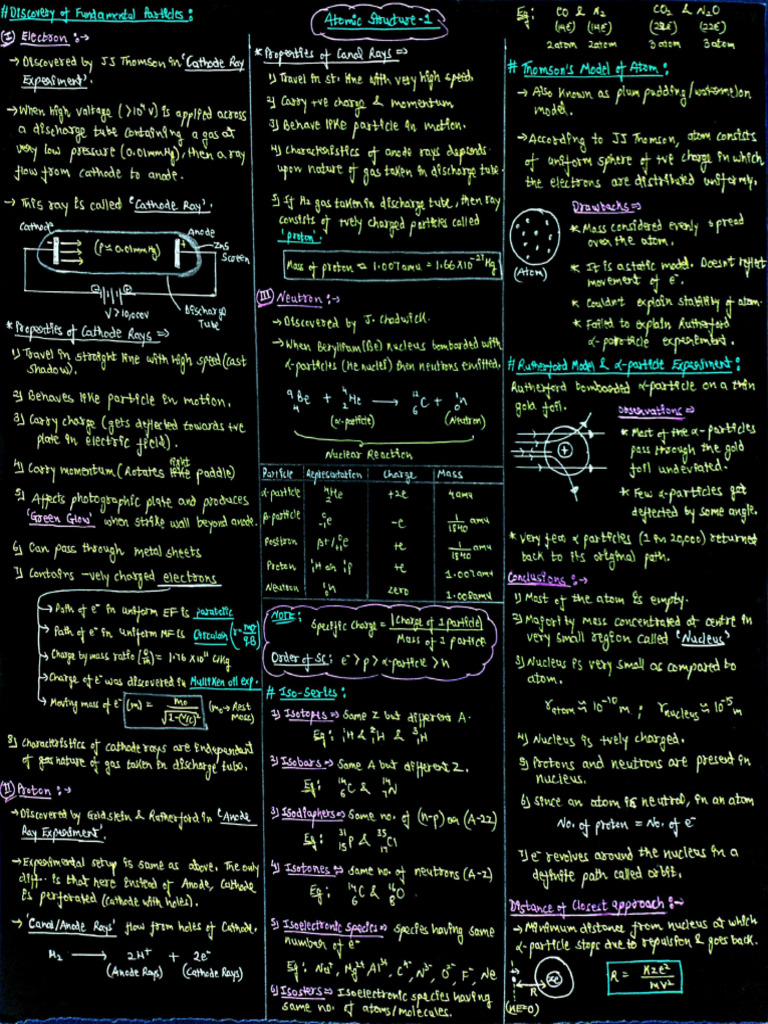 # Discovery of Fundamental Particles :
(I) Electron :→
→ Discovered by JJ Thomson in 'Cathode Ray
Experiment'.
→ When high voltage (>10⁴ V) is applied across
a discharge tube containing a gas at
very low pressure (0.01mmHg), then a ray
flow from cathode to anode.
→ This ray is called 'Cathode Ray'.
Cathode
Anode
(P = 0.01mmHg)
ZnS
Screen
V > 10,000V
Discharge
Tube
* Properties of Cathode Rays ⇒
1) Travel in straight line with high speed (cast
shadow).
2) Behaves like particle in motion.
3) Carry charge (gets deflected towards +ve
plate in electric field).
4) Carry momentum (Rotates light paddle)
5) Affects photographic plate and produces
'Green Glow' when strike wall beyond anode.
6) Can pass through metal sheets
7) Contains -vely charged electrons
→ Path of e⁻ in uniform EF is parabolic
→ Path of e⁻ in uniform MF is Circular (r = mv/qB)
→ Charge by mass ratio (e/m) = 1.76 X10¹¹ C/kg
→ Charge of e⁻ was discovered in Mulliken oil exp.
→ Moving mass of e⁻ (m) = m₀/√1-(v/c)² (m₀→ Rest
Mass)
8) Characteristics of cathode rays are independent
of gas nature of gas taken in discharge tube.
(II) Proton :→
→ Discovered by Goldstein & Rutherford in 'Anode
Ray Experiment'.
→ Experimental setup is same as above. The only
diff. is that here instead of Anode, Cathode
is perforated (cathode with holes).
→ 'Canal/Anode Rays' flow from holes of Cathode.
H₂ → 2H⁺ + 2e⁻
(Anode Rays) (Cathode Rays)
Atomic Structure-1
* Properties of Canal Rays ⇒
1) Travel in st. line with very high speed
2) Carry +ve charge & momentum
3) Behave like particle in motion.
4) Characteristics of anode rays depends
upon nature of gas taken in discharge tube.
5) If H₂ gas taken in discharge tube, then ray
consists of +vely charged particles called
'proton'.
Mass of proton = 1.007amu = 1.66X10⁻²⁷ Kg
(III) Neutron :→
→ Discovered by J. Chadwick.
→ When Beryllium (Be) nucleus bombarded with
α-particles (He nuclei) then neutrons emitted.
⁹₄Be + ⁴₂He → ¹²₆C + ¹₀n
(α-particle) (Neutron)
Nuclear Reaction
Particle Representation Charge Mass
α-particle ⁴₂He +2e 4amu
β-particle ⁰₋₁e -e 1/1840 amu
Positron β+/⁰₊₁e +e 1/1840 amu
Proton ¹₁H or ¹₁p +e 1.007amu
Neutron ¹₀n zero 1.008amu
Note:
Specific Charge = |Charge of 1 particle|/Mass of 1 particle
Order of SC: e⁻ > p > α-particle > n
# Iso-Series :
1) Isotopes ⇒ Same Z but different A.
Eg: ¹₁H & ²₁H & ³₁H
2) Isobars ⇒ Same A but different Z.
Eg: ¹⁴₆C & ¹⁴₇N
3) Isodiaphers ⇒ Same no. of (n-p) or (A-2Z)
Eg: ³¹₁₅P & ³⁵₁₇Cl
4) Isotones ⇒ same no. of neutrons (A-Z)
Eg: ¹⁴₆C & ¹⁶₈O
5) Isoelectronic species ⇒ species having same
number of e⁻
Eg: Na⁺, Mg²⁺ Al³⁺, C⁴⁻, N³⁻, O²⁻, F⁻, Ne
6) Isosters ⇒ Isoelectronic species having
same no. of atoms/molecules.
Eg: CO & N₂ CO₂ & N₂O
(14e) (14e) (22e) (22e)
2atom 2atom 3atom 3atom
# Thomson's Model of Atom :
→ Also known as plum pudding/watermelon
model.
→ According to JJ Thomson, atom consists
of uniform sphere of +ve charge in which
the electrons are distributed uniformly.
(Atom)
Drawbacks ⇒
* Mass considered evenly spread
over the atom.
* It is a static model. Doesn't reflect
movement of e⁻.
* Couldn't explain stability of atom.
* Failed to explain Rutherford
α-particle experiment.
# Rutherford Model & α-particle Experiment :
Rutherford bombarded α-particle on a thin
gold foil.
+
Observations ⇒
* Most of the α-particles
pass through the gold
foil undeviated.
* Few α-particles get
deflected by some angle.
* Very few α particles (1 in 20,000) returned
back to its original path.
Conclusions :→
1) Most of the atom is empty.
2) Majority mass concentrated at centre in
very small region called 'Nucleus'
3) Nucleus is very small as compared to
atom.
r atom ≈ 10⁻¹⁰ m ; r nucleus ≈ 10⁻¹⁵ m
4) Nucleus is +vely charged.
5) Protons and neutrons are present in
nucleus.
6) Since an atom is neutral, in an atom
No. of proton = No. of e⁻
7) e⁻ revolves around the nucleus in a
definite path called orbit.
Distance of Closest approach :→
→ Minimum distance from nucleus at which
α-particle stops due to repulsion & goes back.
R
(KE=0)
R = KZe²/MV²